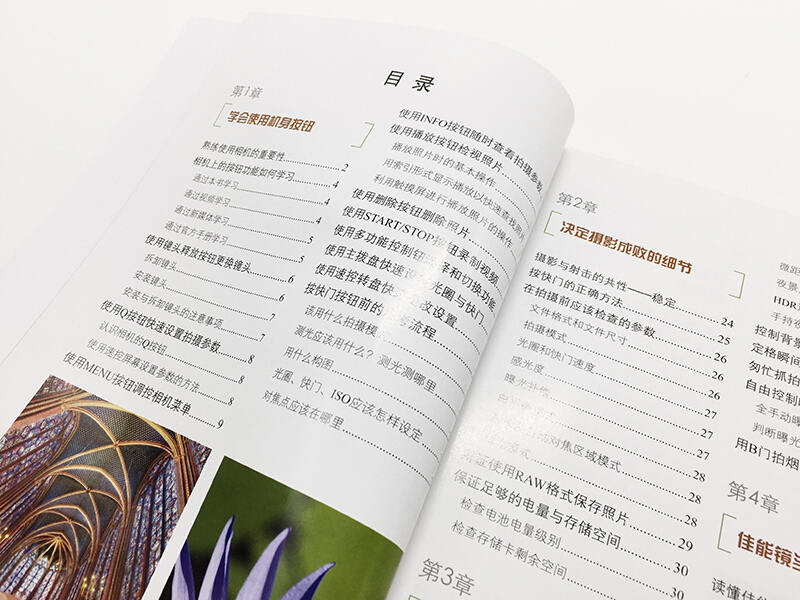 目录
第1章
学会使用机身按钮
熟练使用相机的重要性 2
相机上的按钮功能如何学习 4
通过本书学习 4
通过视频学习 4
通过新媒体学习 5
通过官方手册学习 5
使用镜头释放按钮更换镜头 6
拆卸镜头 6
安装镜头 7
安装与拆卸镜头的注意事项 7
使用Q按钮快速设置拍摄参数 8
认识相机的Q按钮 8
使用速控屏幕设置参数的方法 8
使用MENU按钮调控相机菜单 9
使用INFO按钮随时查看拍摄参数
使用播放按钮检视照片
播放照片时的基本操作
用索引形式显示播放以快速查找照片
利用触摸屏进行播放照片的操作
使用删除按钮删除照片
使用START/STOP按钮录制视频
使用多功能控制钮选择和切换功能
使用主拨盘快速设置光圈与快门
使用速控转盘快速更改设置
按快门按钮前的思考流程
该用什么拍摄模式
测光应该用什么？测光测哪里
用什么构图
光圈、快门、ISO应该怎样设定
对焦点应该在哪里
第2章
决定摄影成败的细节
摄影与射击的共性——稳定 24
按快门的正确方法 25
在拍摄前应该检查的参数 26
文件格式和文件尺寸 26
拍摄模式 26
光圈和快门速度 27
感光度 27
曝光补偿 27
对焦区域模式 28
模式 28
保证使用RAW格式保存照片 28
保证足够的电量与存储空间 29
检查电池电量级别 30
检查存储卡剩余空间 30
第3章
微距
夜景
HDR
手持夜
控制背景
定格瞬间
匆忙抓拍
自由控制
全手动曝
判断曝光
用B门拍烟
第4章
佳能镜头
读懂佳能